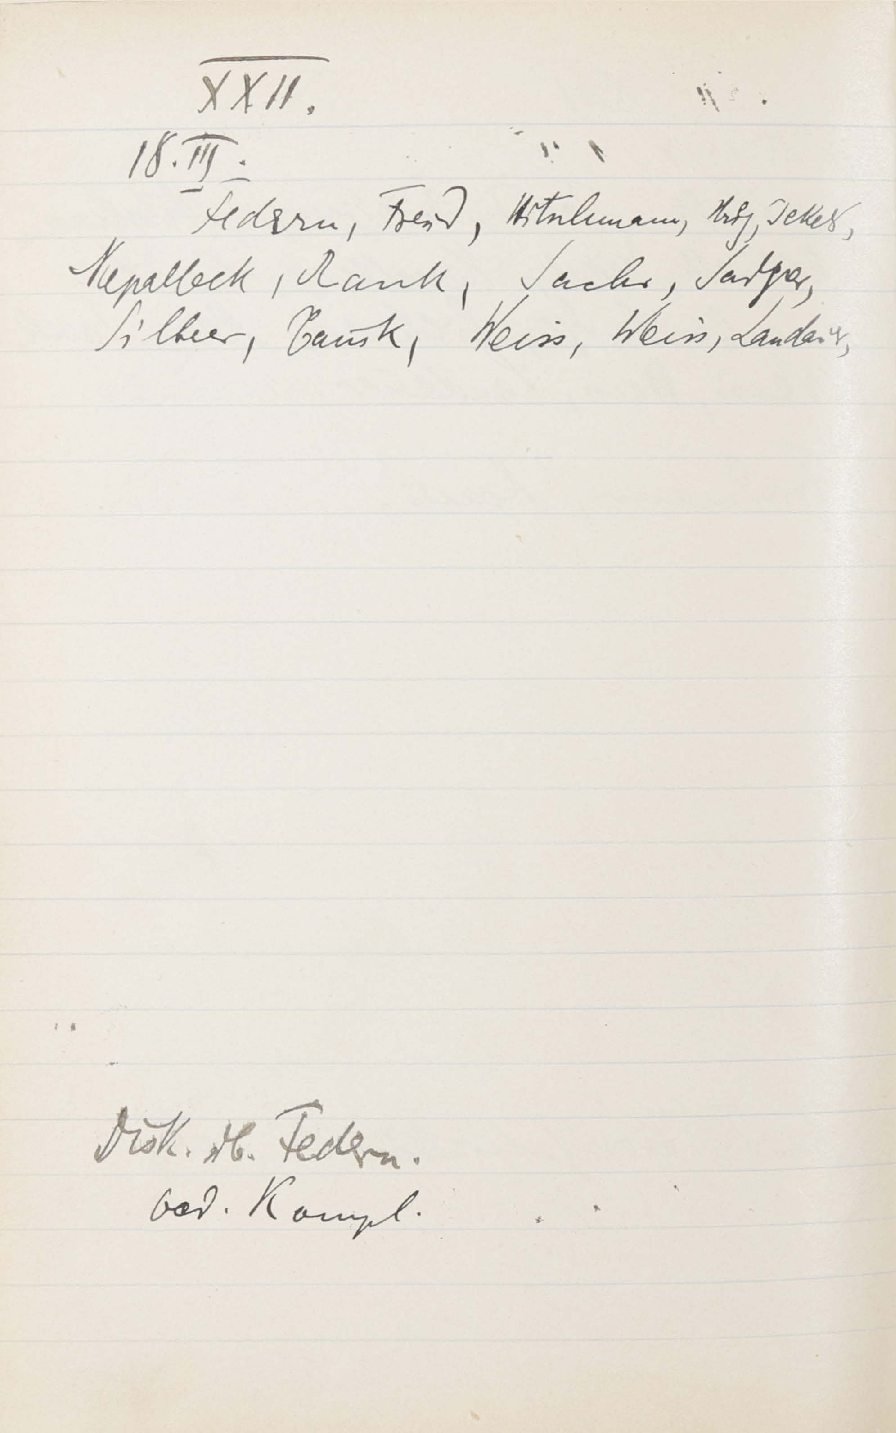 XXII.
18. III.
Federn, Freud, Hitschmann, Hug, Jekels,
Nepalleck, Rank, Sachs, Sadger,
Silberer, Tausk, Weiss, Weiss, Landauer,
Disk. üb. Federn.
Oed. Kompl.